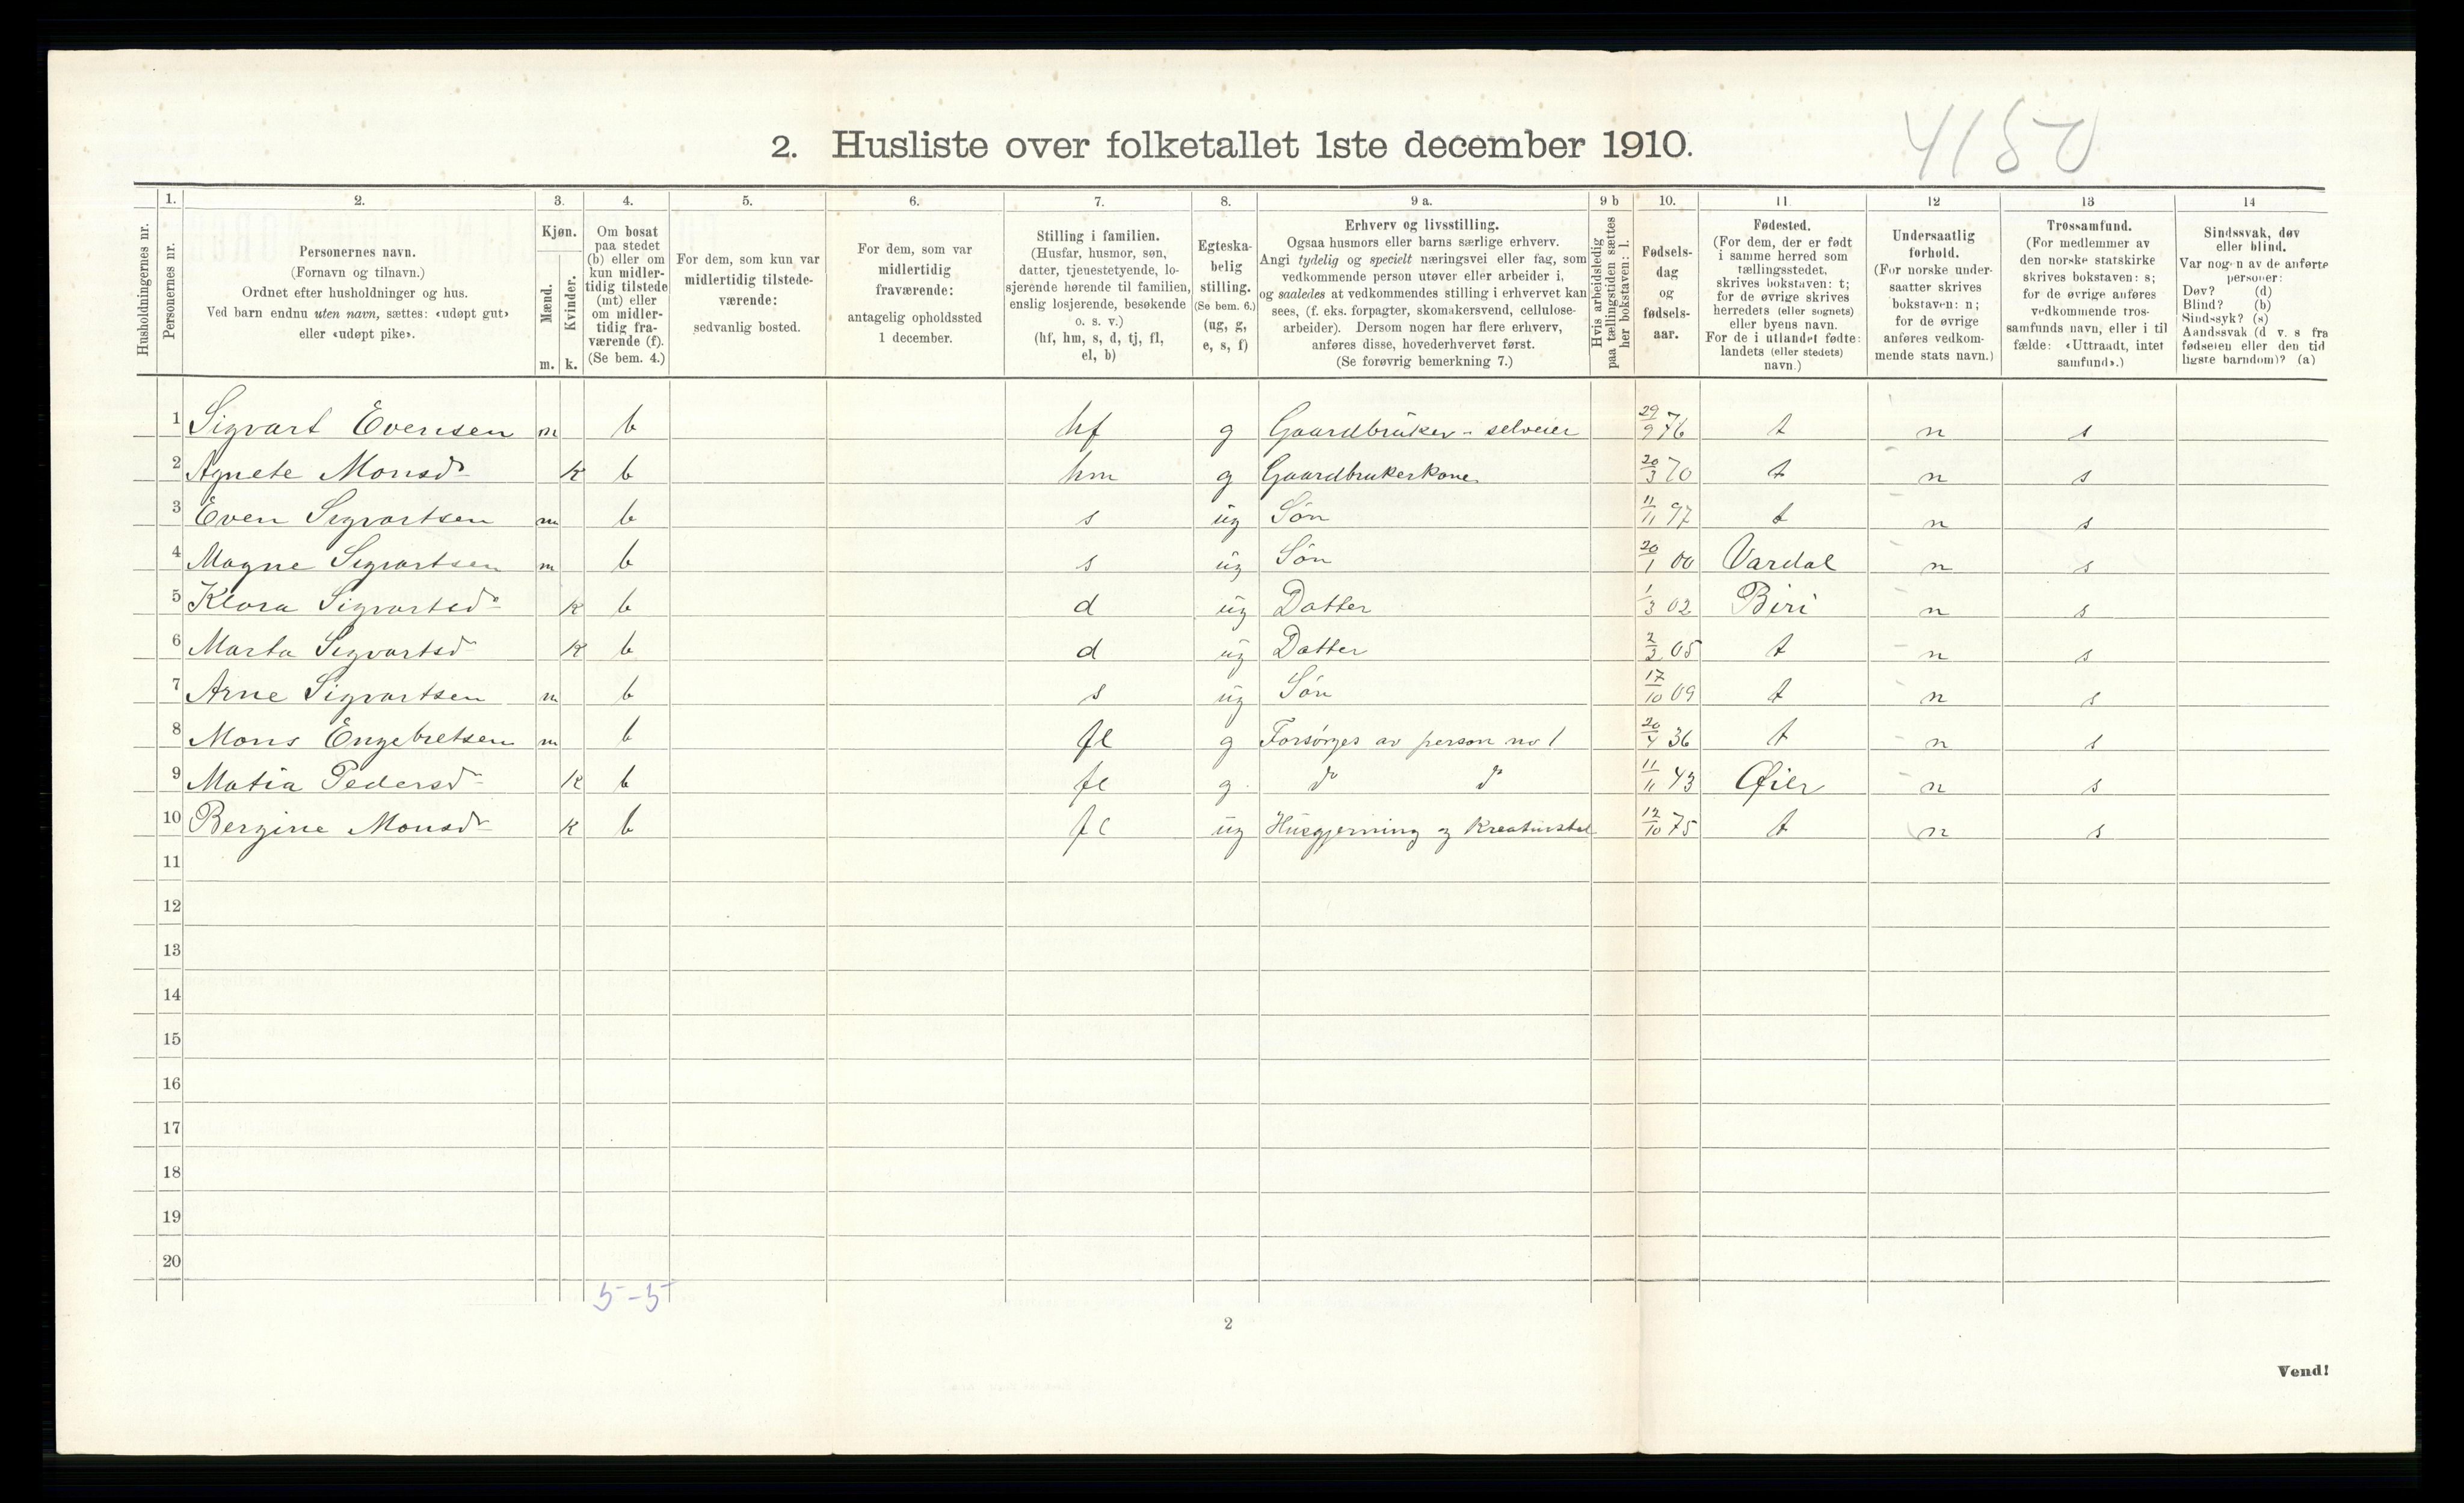 4150
2. Husliste over folketallet 1ste december 1910.
Husholdningernes nr.
1.
Personernes nr.
2.
Personernes navn.
(Fornavn og tilnavn.)
Ordnet efter husholdninger og hus.
Ved barn endnu uten navn, sættes: «udøpt gut»
eller «udøpt pike».
3.
Kjøn.
Mænd.
Kvinder.
m. k.
4.
Om bosat
paa stedet
(b) eller om
kun midler-
tidig tilstede
(mt) eller
om midler-
tidig fra-
værende (f).
(Se bem. 4.)
5.
For dem, som kun var
midlertidig tilstede-
værende:
sedvanlig bosted.
6.
For dem, som var
midlertidig
fraværende:
antagelig opholdssted
1 december.
7.
Stilling i familien.
(Husfar, husmor, søn,
datter, tjenestetyende, lo-
sjerende hørende til familien,
enslig losjerende, besøkende
o. s. v.)
(hf, hm, s, d, tj, fl,
el, b)
8.
Egteska-
belig
stilling.
(Se bem. 6.)
(ug, g,
e, s, f)
9 a.
Erhverv og livsstilling.
Ogsaa husmors eller barns særlige erhverv.
Angi tydelig og specielt næringsvei eller fag, som
vedkommende person utøver eller arbeider i,
og saaledes at vedkommendes stilling i erhvervet kan
sees, (f. eks. forpagter, skomakersvend, cellulose-
arbeider). Dersom nogen har flere erhverv,
anføres disse, hovederhvervet først.
(Se forøvrig bemerkning 7.)
9 b
Hvis arbeidsledig
paa tællingstiden sættes
her bokstaven: l.
10.
Fødsels-
dag
og
fødsels-
aar.
11
Fødested.
(For dem, der er født
i samme herred som
tællingsstedet,
skrives bokstaven: t;
for de øvrige skrives
herredets (eller sognets)
eller byens navn.
For de i utlandet fødte:
landets (eller stedets)
navn.)
12
Undersaatlig
forhold.
(For norske under-
saatter skrives
bokstaven: n;
for de øvrige
anføres vedkom-
mende stats navn.)
13
Trossamfund.
(For medlemmer av
den norske statskirke
skrives bokstaven: s;
for de øvrige anføres
vedkommende tros-
samfunds navn, eller i til
fælde: «Uttraadt, intet
samfund».)
14
Sindssvak, døv
eller blind.
Var nogen av de anførte
personer:
Døv? (d)
Blind? (b)
Sindssyk? (s)
Aandssvak (d. v. s. fra
fødselen eller den tid
ligste barndom)? (a)
1 Sigvart Evensen m b hf g Gaardbruker - selveier 29/9 76 t n s
2 Agnete Monsdr k b hm g Gaardbrukerkone 20/3 70 t n s
3 Even Sigvartsen m b s ug Søn 11/11 97 t n s
4 Magne Sigvartsen m b s ug Søn 20/1 00 Vardal n s
5 Klara Sigvartsdr k b d ug Datter 1/3 02 Biri n s
6 Marta Sigvartsdr k b d ug Datter 2/2 05 t n s
7 Arne Sigvartsen m b s ug Søn 17/10 09 t n s
8 Mons Engebretsen m b fl g Forsørges av person no 1 20/4 36 t n s
9 Matia Pedersdr k b fl g do do 11/11 43 Øier n s
10 Bergine Monsdr k b fl ug Husgjerning og Kreaturstel 12/10 75 t n s
11
12
13
14
15
16
17
18
19
20
5-5
2
Vend!